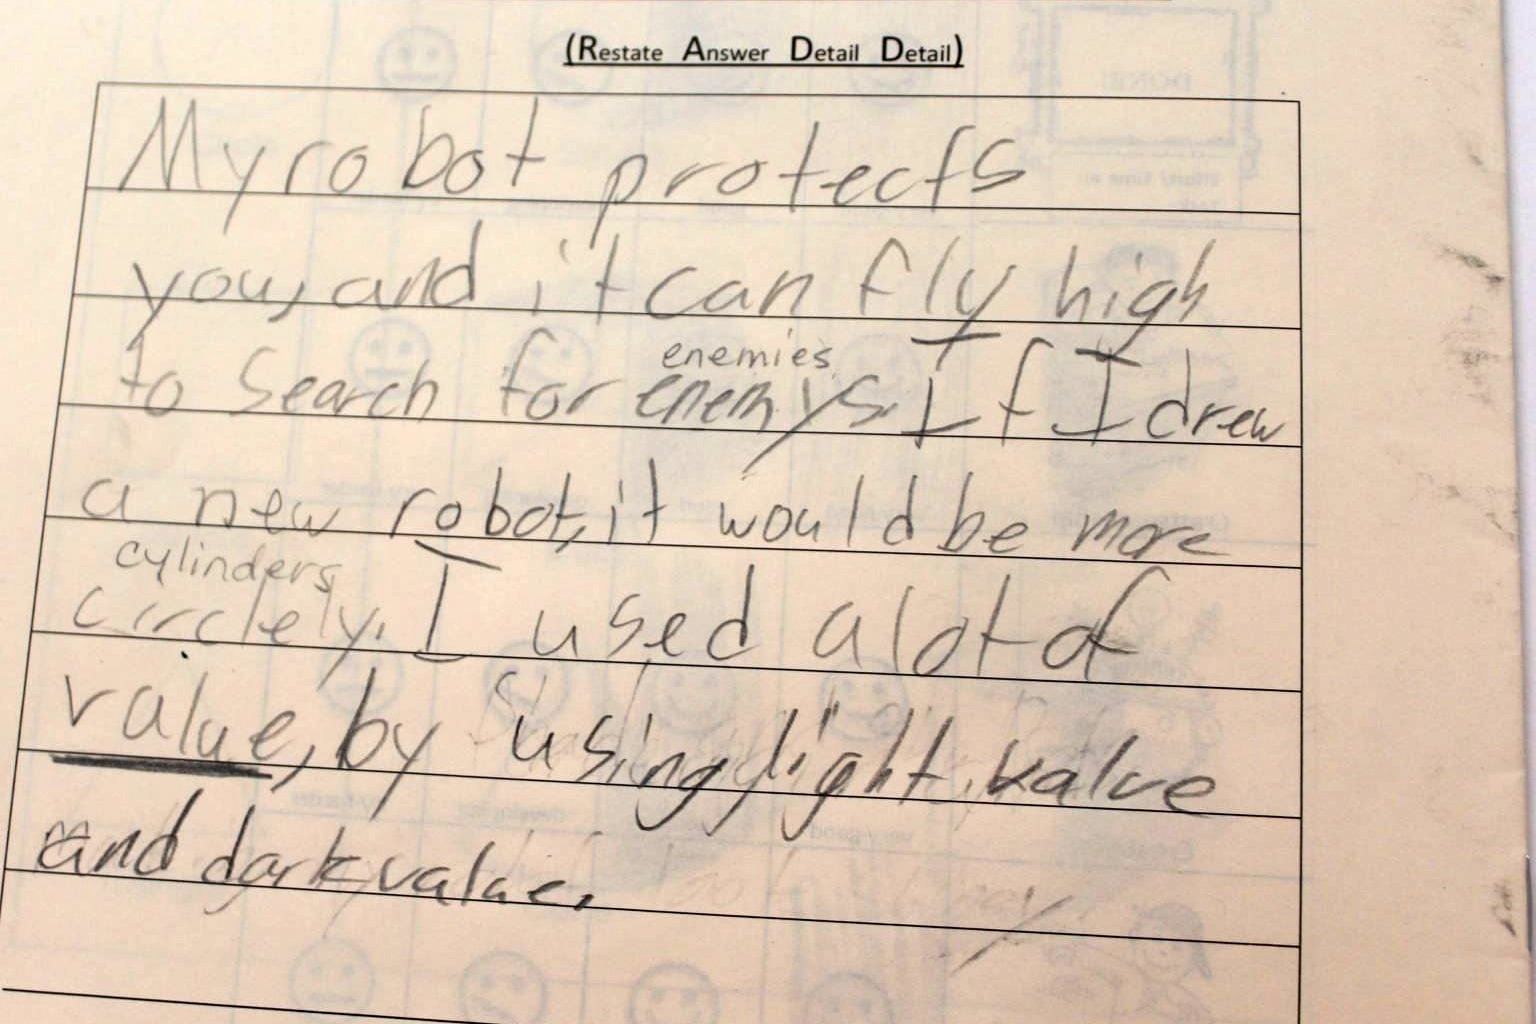 (Restate Answer Detail Detail)
My robot protects
you, and it can fly high
enemies
to search for enemys. If I drew
a new robot, it would be more
cylinders
circlely. I used a lot of
value, by using light value
and dark value.